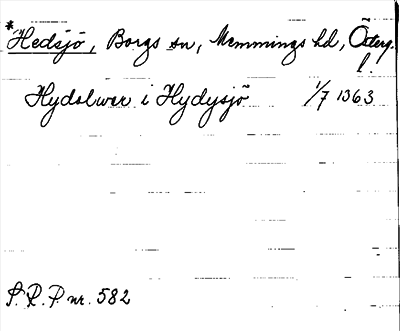 *Hedsjö, Borgs sn, Memmings hd, Österg.
l.
Hydolwær i Hydysjö 1/7 1363
S. R. P. nr. 582